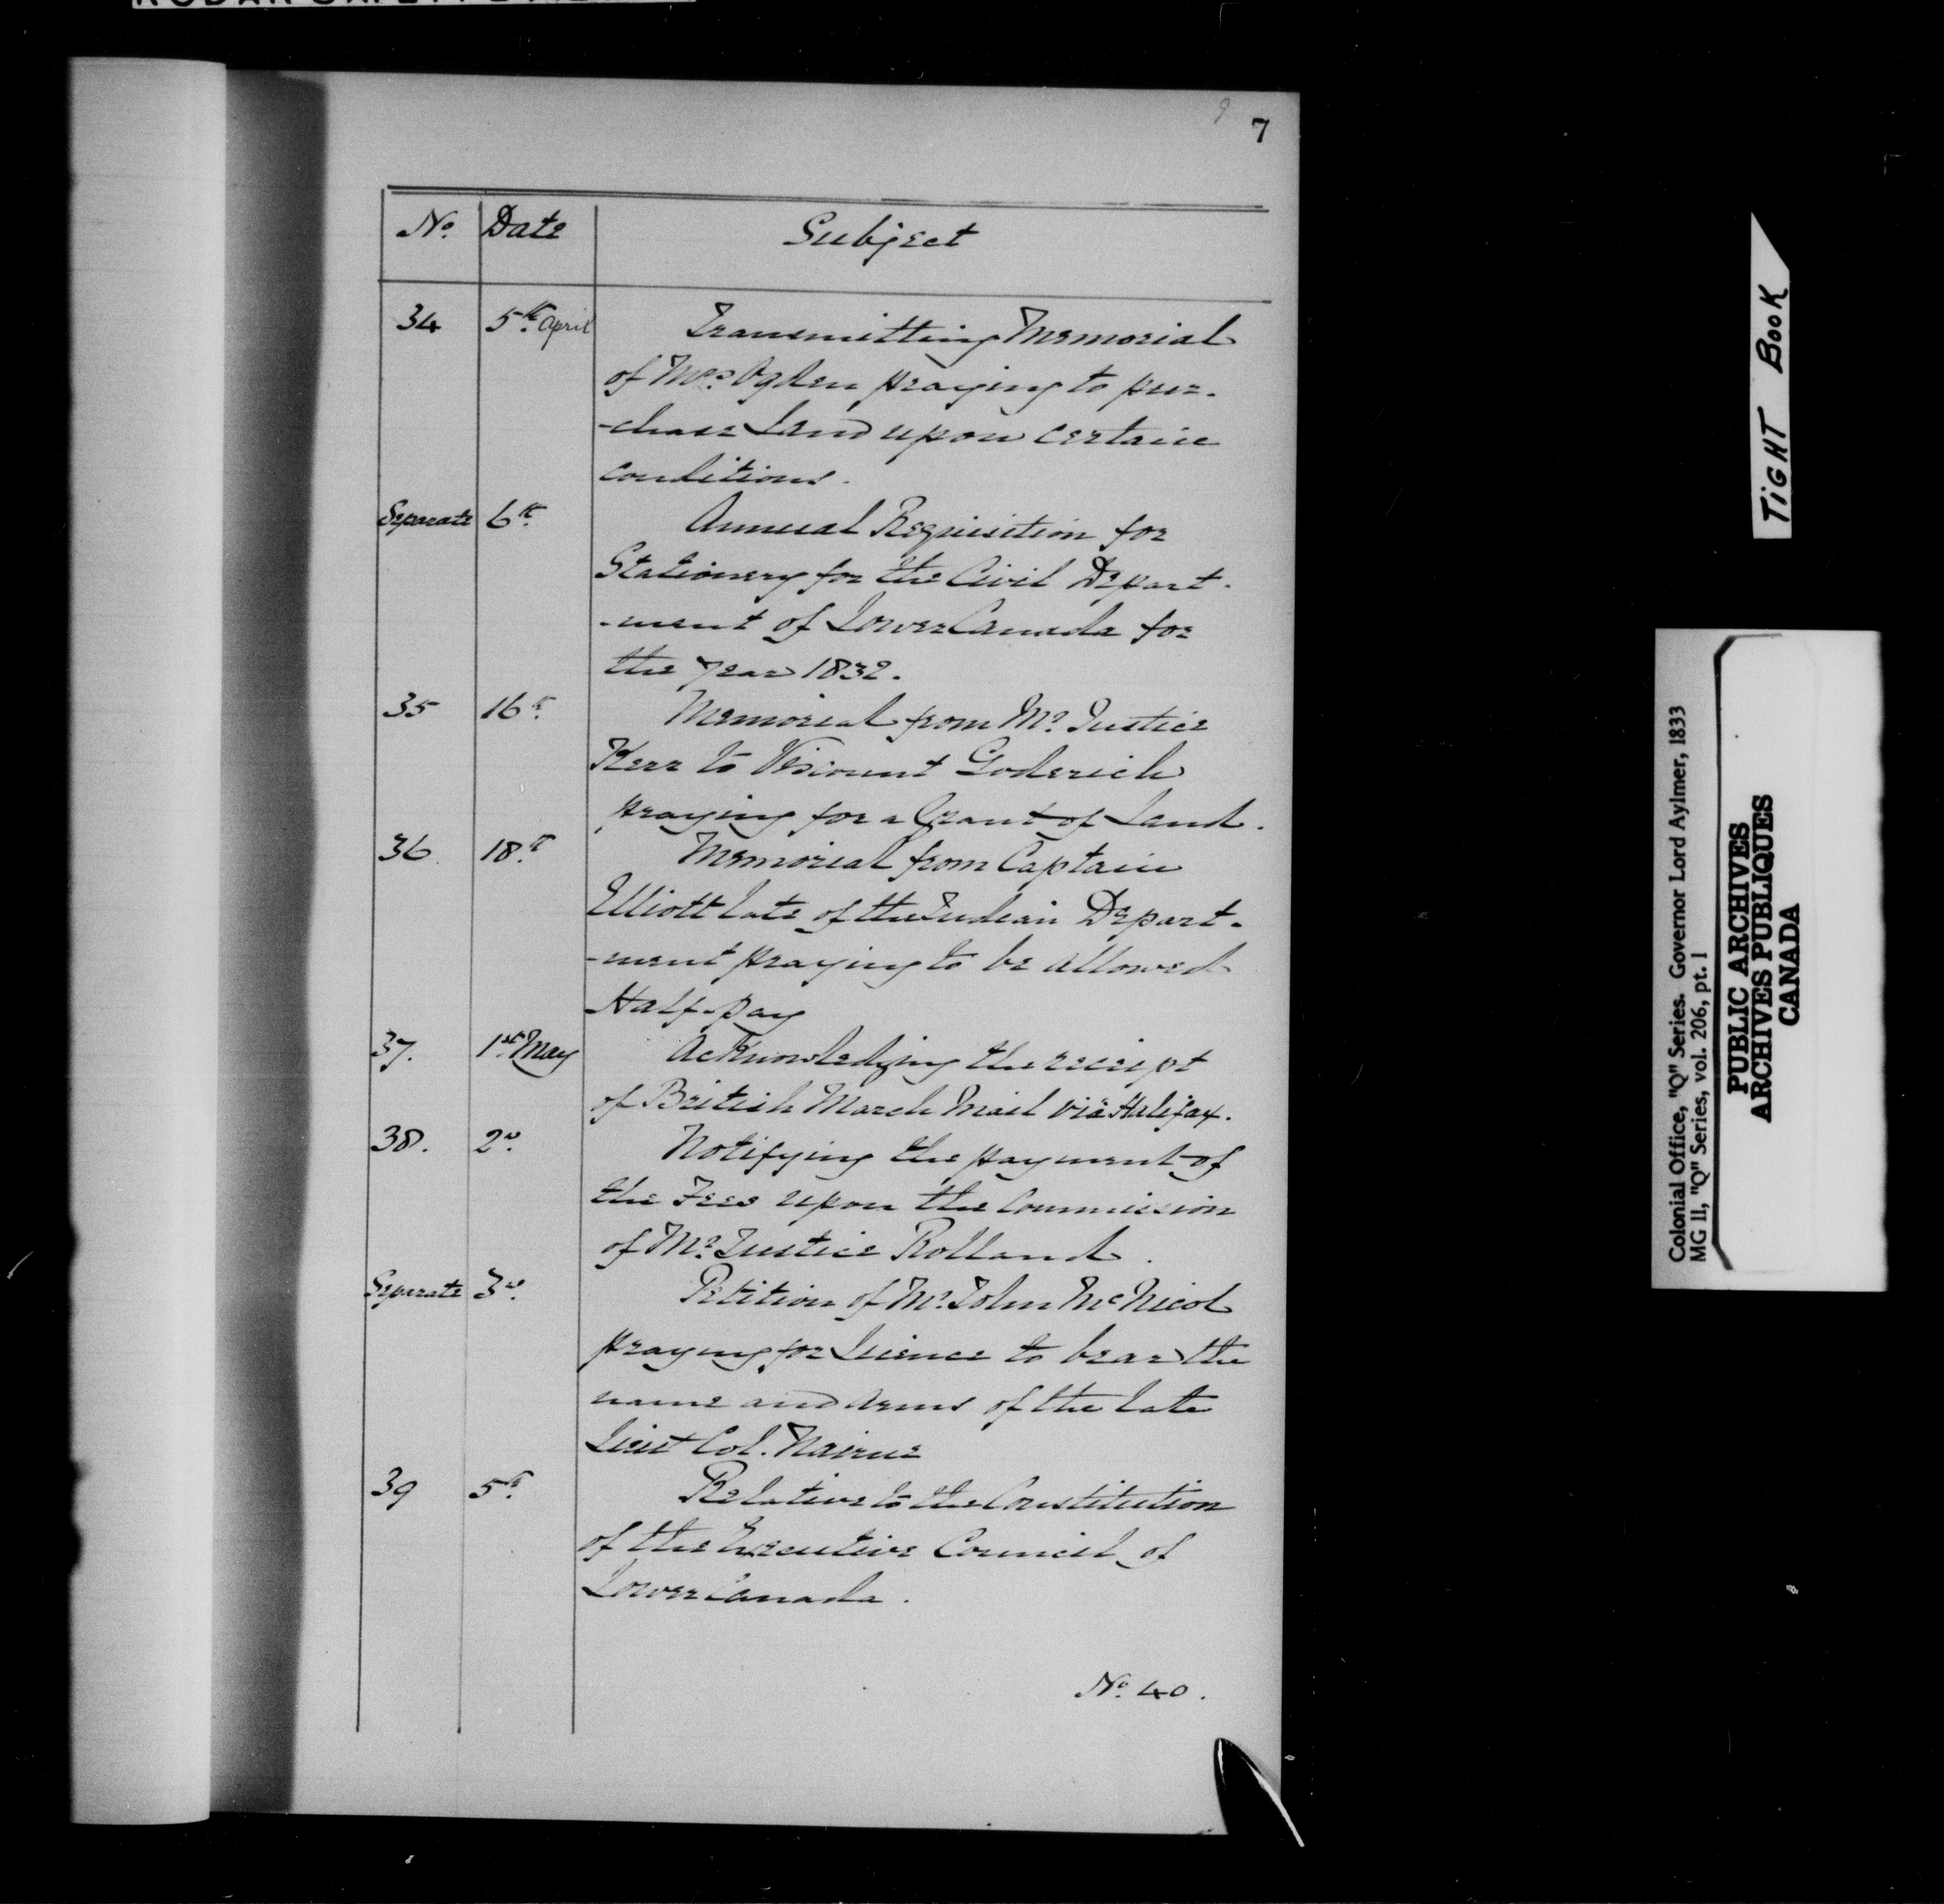 7
No. Date Subject
34 5th April Transmitting Memorial
of Mrs. Ogden praying to pur-
-chase Land upon certain
conditions.
Separate 6th Annual Requisition for
Stationery for the Civil Depart-
-ment of Lower Canada for
the Year 1832.
35 16th Memorial from Mr. Justice
Kerr to Viscount Goderich
praying for a Grant of Land.
36. 18th Memorial from Captain
Elliott late of the Indian Depart-
-ment praying to be allowed
Half-pay
37. 1st May Acknowledging the receipt
of British March Mail via Halifax.
38. 2d Notifying the payment of
the Fees upon the Commission
of Mr. Justice Rolland.
Separate 3d Petition of Mr. John McNicol
praying for Licence to bear the
name and arms of the late
Lieut Col. Nairne
39 5th Relative to the Constitution
of the Executive Council of
Lower Canada.
No. 40.
TIGHT BOOK
Colonial Office, "Q" Series. Governor Lord Aylmer, 1833
MG 11, "Q" Series, vol. 206, pt. 1
PUBLIC ARCHIVES
ARCHIVES PUBLIQUES
CANADA